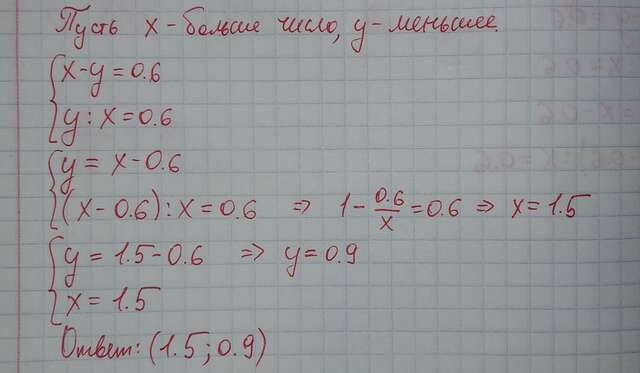 Пусть x - больше число, y - меньшее.
x - y = 0.6
y : x = 0.6
y = x - 0.6
(x - 0.6) : x = 0.6 ⇒ 1 - 0.6/x = 0.6 ⇒ x = 1.5
y = 1.5 - 0.6 ⇒ y = 0.9
x = 1.5
Ответ: (1.5; 0.9)